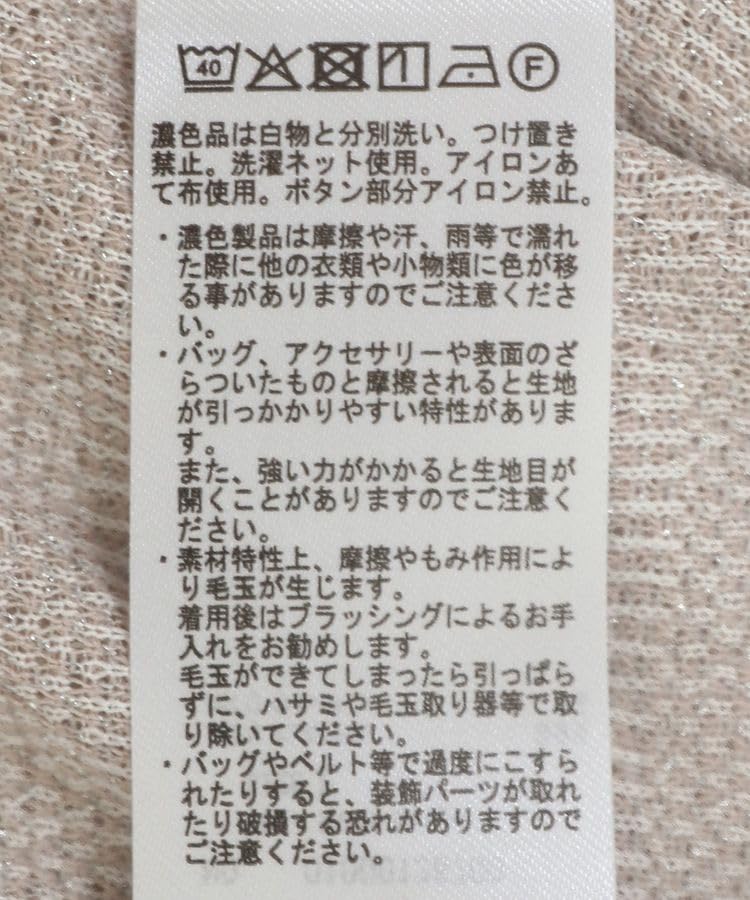 40 F
濃色品は白物と分別洗い。つけ置き
禁止。洗濯ネット使用。アイロンあ
て布使用。ボタン部分アイロン禁止。
・濃色製品は摩擦や汗、雨等で濡れ
た際に他の衣類や小物類に色が移
る事がありますのでご注意くださ
い。
・バッグ、アクセサリーや表面のざ
らついたものと摩擦されると生地
が引っかかりやすい特性がありま
す。
また、強い力がかかると生地目が
開くことがありますのでご注意く
ださい。
・素材特性上、摩擦やもみ作用によ
り毛玉が生じます。
着用後はブラッシングによるお手
入れをお勧めします。
毛玉ができてしまったら引っぱら
ずに、ハサミや毛玉取り器等で取
り除いてください。
・バッグやベルト等で過度にこすら
れたりすると、装飾パーツが取れ
たり破損する恐れがありますので
ご注意ください。